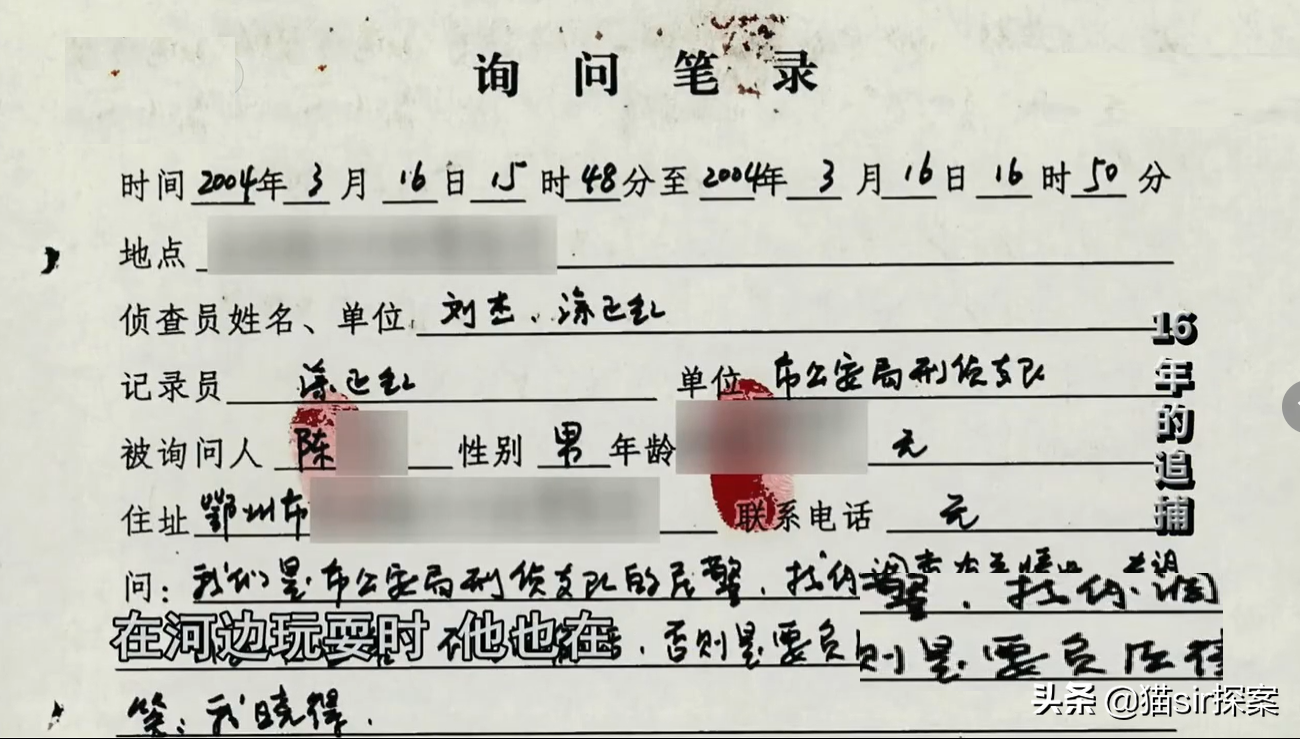 询问笔录
时间 2004年 3 月 16 日 15 时 48 分至 2004年 3 月 16 日 16 时 50 分
地点
侦查员姓名、单位 刘杰、涂
记录员 涂 单位 市公安局刑侦支队
被询问人 陈 性别 男 年龄 元
住址 鄂州市 联系电话 元
16年的追捕
问：我们是市公安局刑侦支队的民警，找你调
警，找你调
在河边玩耍时 他也在
，否则是要负
则是要负
答：我晓得．
头条 @猫sir探案